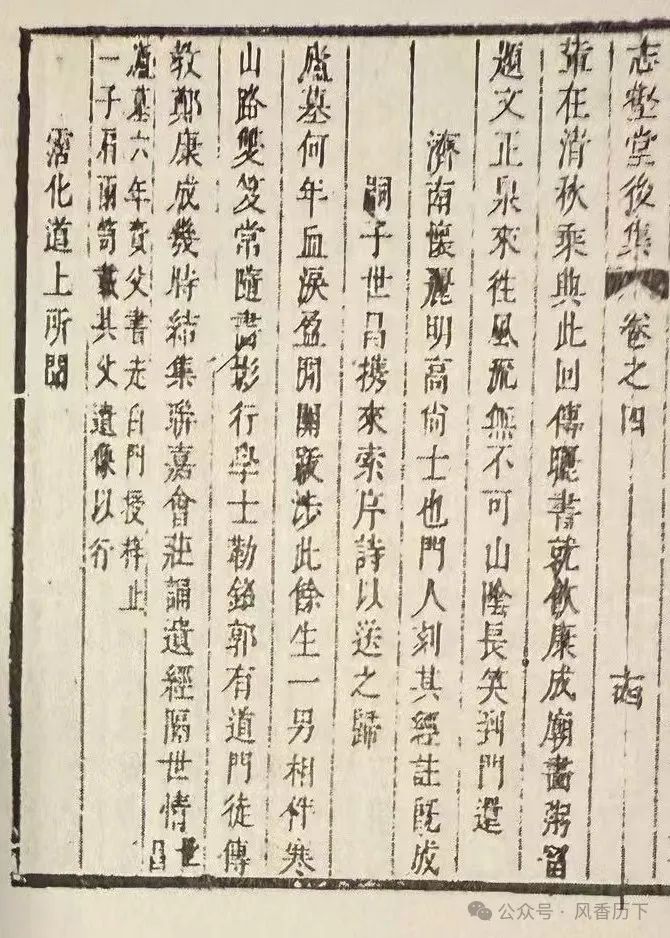 志壑堂後集 卷之四
在清秋乘興此回傳曬書就飲康成廟畫粥留
題文正泉來往風流無不可山陰長笑到門還
濟南懷麗明高尚士也門人刻其經註既成
嗣子世昌携來索序詩以送之歸
廬墓何年血淚盈間關跋涉此餘生一男相伴寒
山路雙笈常隨書影行學士勒銘郭有道門徒傳
教鄭康成幾時結集聯嘉會莊誦遺經隔世情世昌
廬墓六年賫父書走白門授梓止
一子肩兩笥載其父遺像以行
霑化道上所聞
公众号 · 风香历下